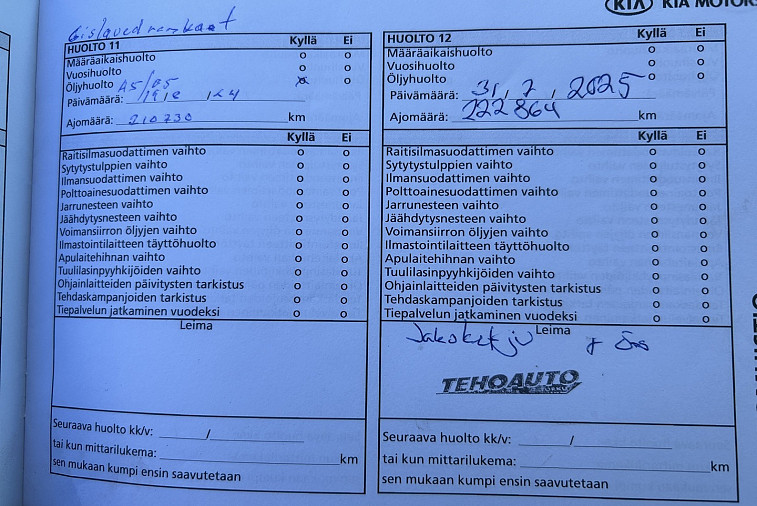 KIA KIA MOTORS
Gislaved renkaat
HUOLTO 11 Kyllä Ei
Määräaikaishuolto o o
Vuosihuolto o o
Öljyhuolto o o
Päivämäärä:
Ajomäärä: 210730 km
Kyllä Ei
Raitisilmasuodattimen vaihto o o
Sytytystulppien vaihto o o
Ilmansuodattimen vaihto o o
Polttoainesuodattimen vaihto o o
Jarrunesteen vaihto o o
Jäähdytysnesteen vaihto o o
Voimansiirron öljyjen vaihto o o
Ilmastointilaitteen täyttöhuolto o o
Apulaitehihnan vaihto o o
Tuulilasinpyyhkijöiden vaihto o o
Ohjainlaitteiden päivitysten tarkistus o o
Tehdaskampanjoiden tarkistus o o
Tiepalvelun jatkaminen vuodeksi o o
Leima
Seuraava huolto kk/v: /
tai kun mittarilukema: km
sen mukaan kumpi ensin saavutetaan
HUOLTO 12 Kyllä Ei
Määräaikaishuolto o o
Vuosihuolto o o
Öljyhuolto o o
Päivämäärä: 31, 7, 2025
Ajomäärä: 222864 km
Kyllä Ei
Raitisilmasuodattimen vaihto o o
Sytytystulppien vaihto o o
Ilmansuodattimen vaihto o o
Polttoainesuodattimen vaihto o o
Jarrunesteen vaihto o o
Jäähdytysnesteen vaihto o o
Voimansiirron öljyjen vaihto o o
Ilmastointilaitteen täyttöhuolto o o
Apulaitehihnan vaihto o o
Tuulilasinpyyhkijöiden vaihto o o
Ohjainlaitteiden päivitysten tarkistus o o
Tehdaskampanjoiden tarkistus o o
Tiepalvelun jatkaminen vuodeksi o o
Leima
Jakoketju
TEHOAUTO
Seuraava huolto kk/v: /
tai kun mittarilukema: km
sen mukaan kumpi ensin saavutetaan